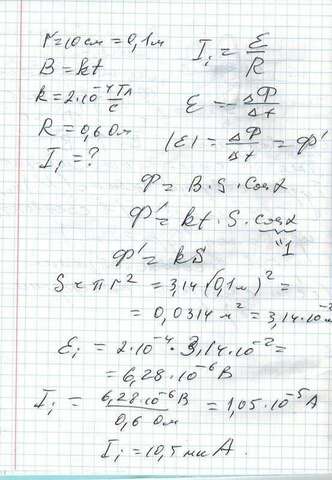 r = 10 см = 0,1 м
B = kt
k = 2·10⁻⁴ Тл/с
R = 0,6 Ом
I_i = ?
I_i = ε/R
ε = -ΔΦ/Δt
|ε| = ΔΦ/Δt = Φ'
Φ = B·S·cosα
Φ' = kt·S·cosα
"1
Φ' = kS
S = πr² = 3,14·(0,1м)² =
= 0,0314 м² = 3,14·10⁻² м
ε_i = 2·10⁻⁴·3,14·10⁻² =
= 6,28·10⁻⁶ В
I_i = 6,28·10⁻⁶ В / 0,6 Ом = 1,05·10⁻⁵ А
I_i = 10,5 мкА.